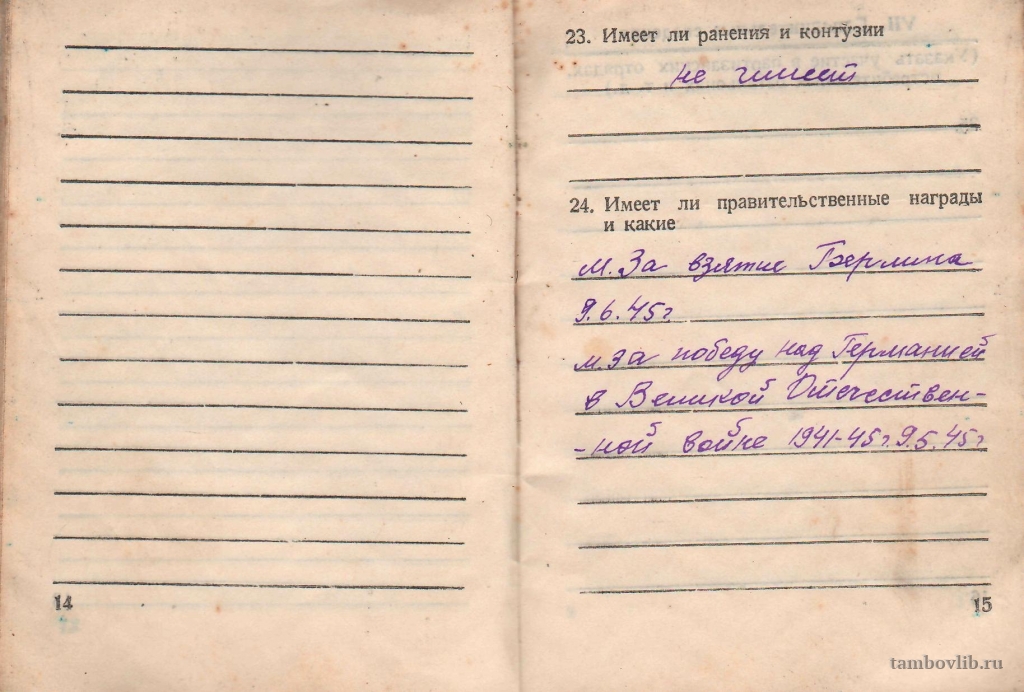 23. Имеет ли ранения и контузии
не имеет
24. Имеет ли правительственные награды
и какие
м. За взятие Берлина
9.6.45г
м за победу над Германией
в Великой Отечествен-
-ной войне 1941-45г. 9.5.45г
14
15
tambovlib.ru